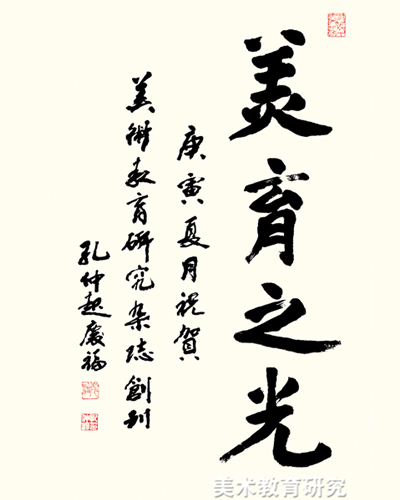 美育之光
庚寅夏月祝賀
美術教育研究杂誌創刊
孔仲起慶福
美术教育研究